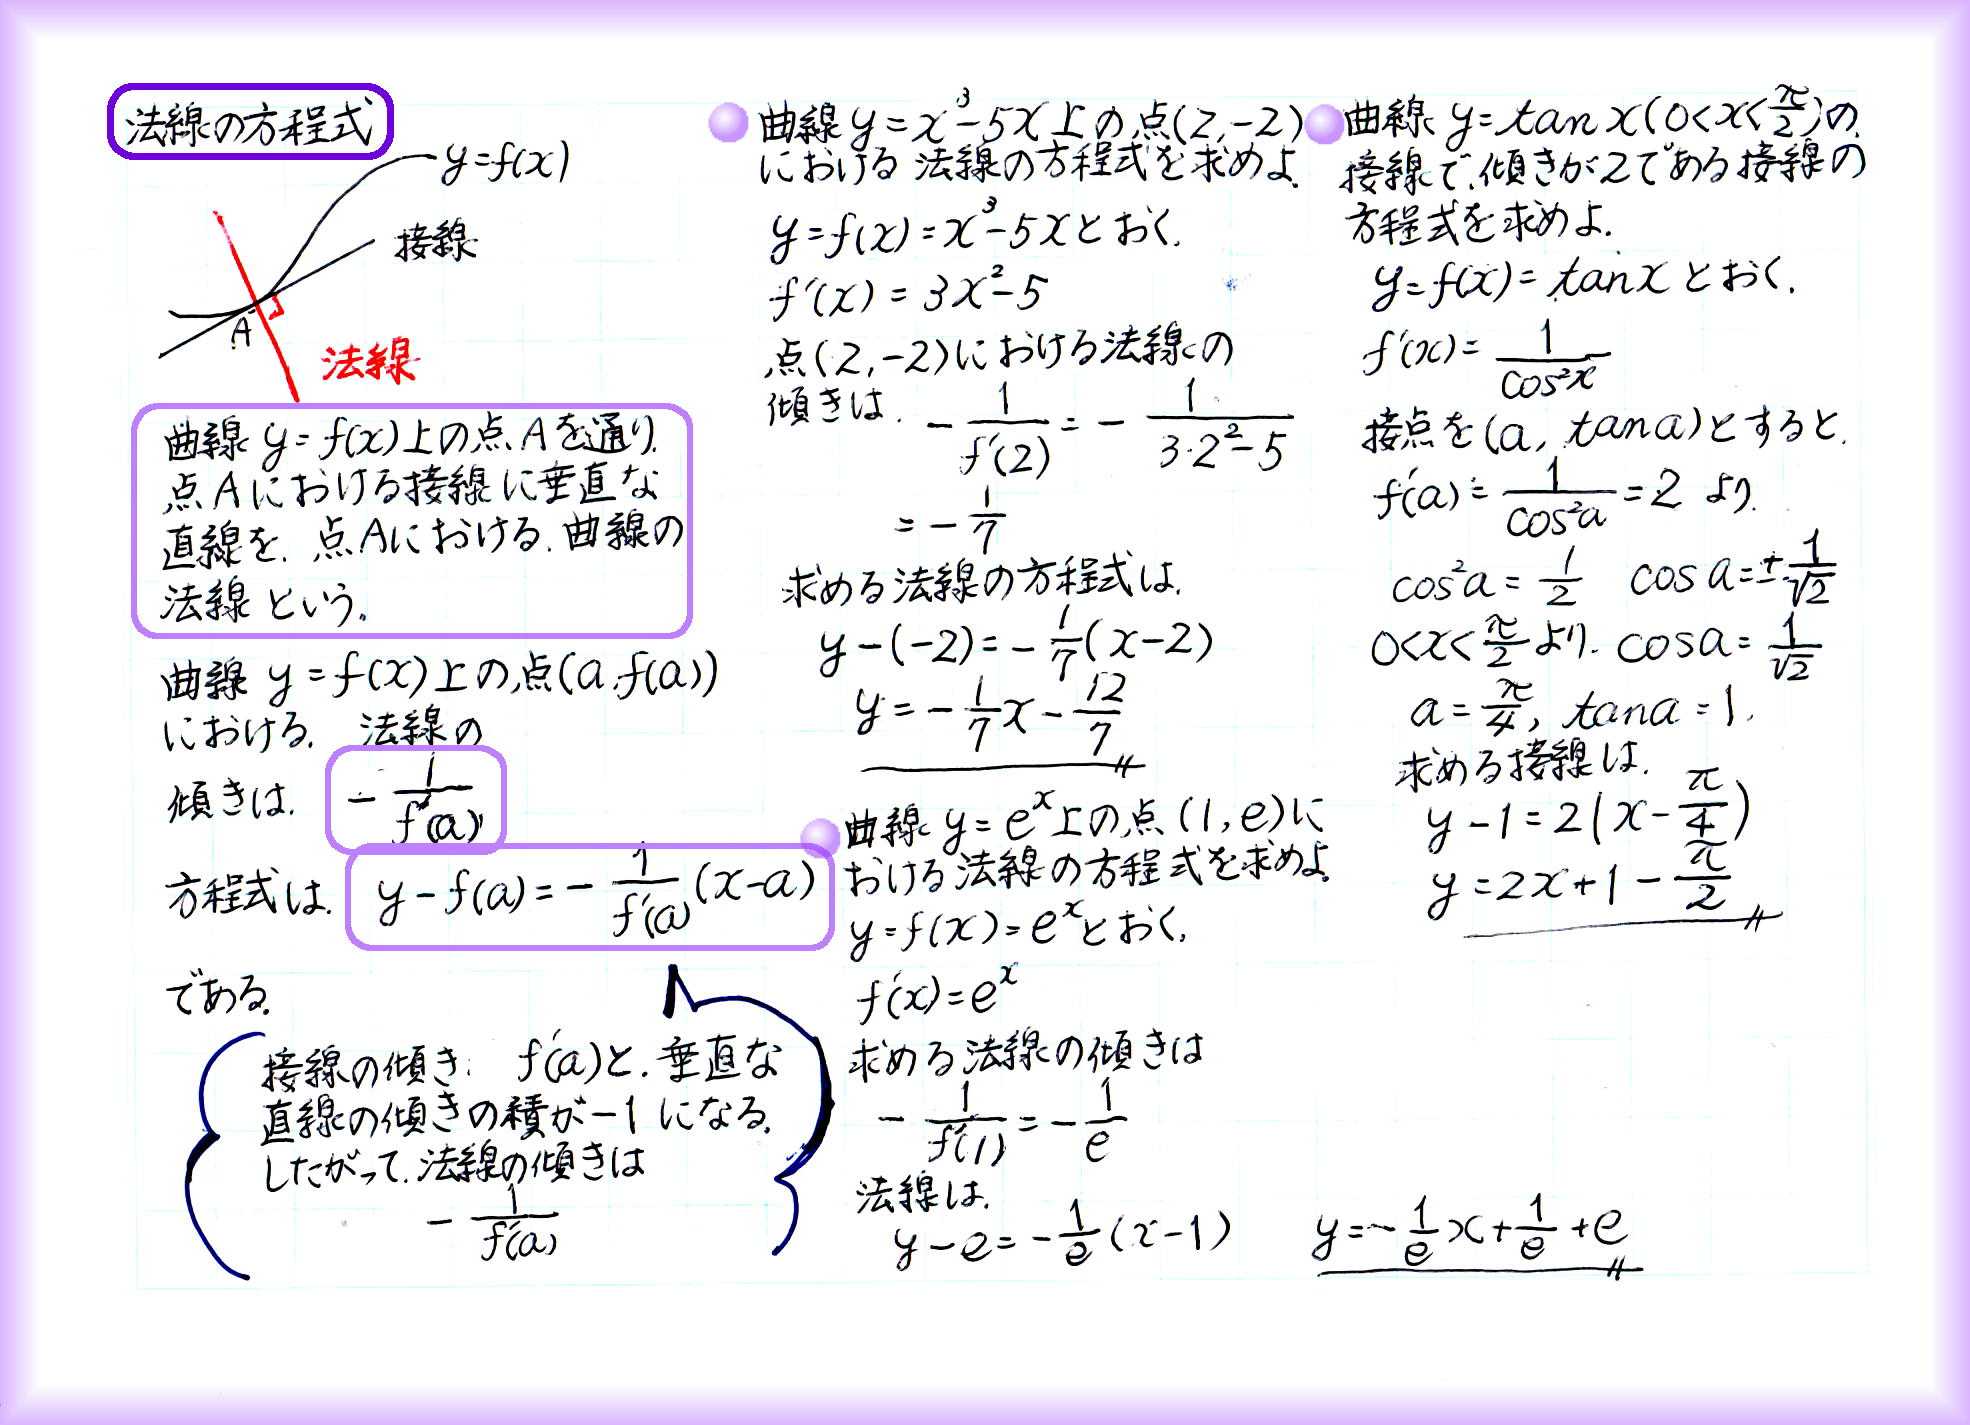 法線の方程式
y=f(x)
接線
A
法線
曲線 y=f(x)上の点Aを通り、
点Aにおける接線に垂直な
直線を、点Aにおける、曲線の
法線という。
曲線 y=f(x)上の点(a, f(a))
における、法線の
傾きは、 -1/f'(a)
方程式は、 y-f(a)=-1/f'(a)(x-a)
である。
接線の傾き、f'(a)と、垂直な
直線の傾きの積が-1になる。
したがって、法線の傾きは
-1/f'(a)
曲線 y=x³-5x上の点(2,-2)
における法線の方程式を求めよ。
y=f(x)=x³-5xとおく。
f'(x)=3x²-5
点(2,-2)における法線の
傾きは、 -1/f'(2)=-1/(3・2²-5)
=-1/7
求める法線の方程式は、
y-(-2)=-1/7(x-2)
y=-1/7x-12/7
曲線 y=eˣ上の点(1,e)に
おける法線の方程式を求めよ。
y=f(x)=eˣとおく。
f'(x)=eˣ
求める法線の傾きは
-1/f'(1)=-1/e
法線は、
y-e=-1/e(x-1) y=-1/e x+1/e+e
曲線 y=tanx(0<x<π/2)の、
接線で、傾きが2である接線の
方程式を求めよ。
y=f(x)=tanxとおく。
f'(x)=1/cos²x
接点を(a, tana)とすると、
f'(a)=1/cos²a=2 より、
cos²a=1/2 cosa=±1/√2
0<x<π/2より、cosa=1/√2
a=π/4, tana=1,
求める接線は、
y-1=2(x-π/4)
y=2x+1-π/2